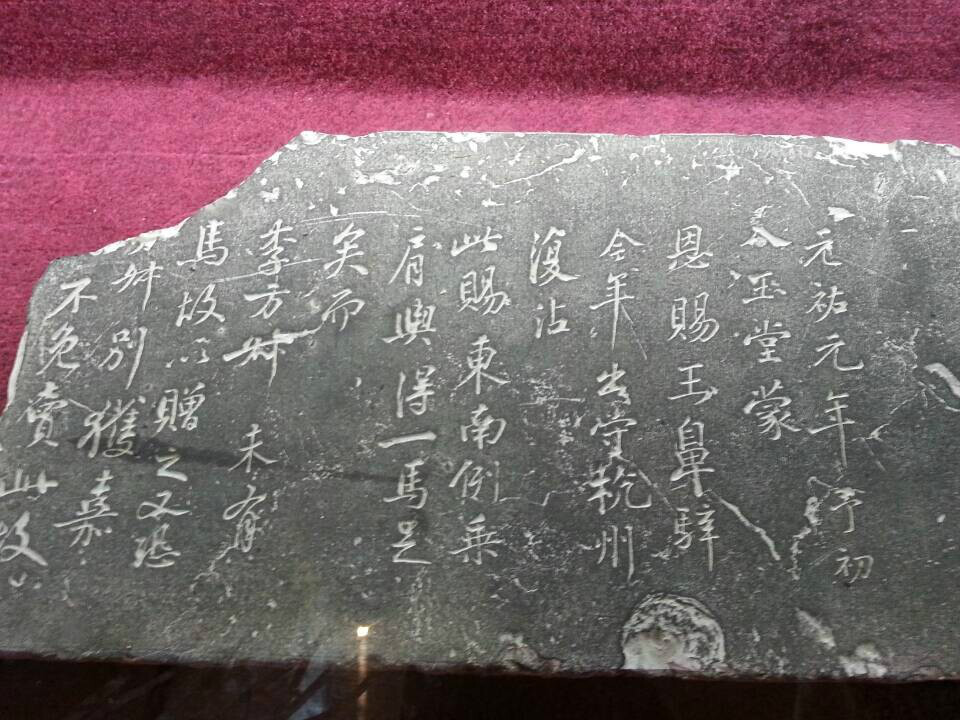 元祐元年予初
入玉堂蒙
恩賜玉鼻騂
今年出守杭州
復沾
此賜東南例乘
肩輿得一馬足
矣而
李方叔未有
馬故以贈之又恐
方叔別獲嘉
不免賣此故